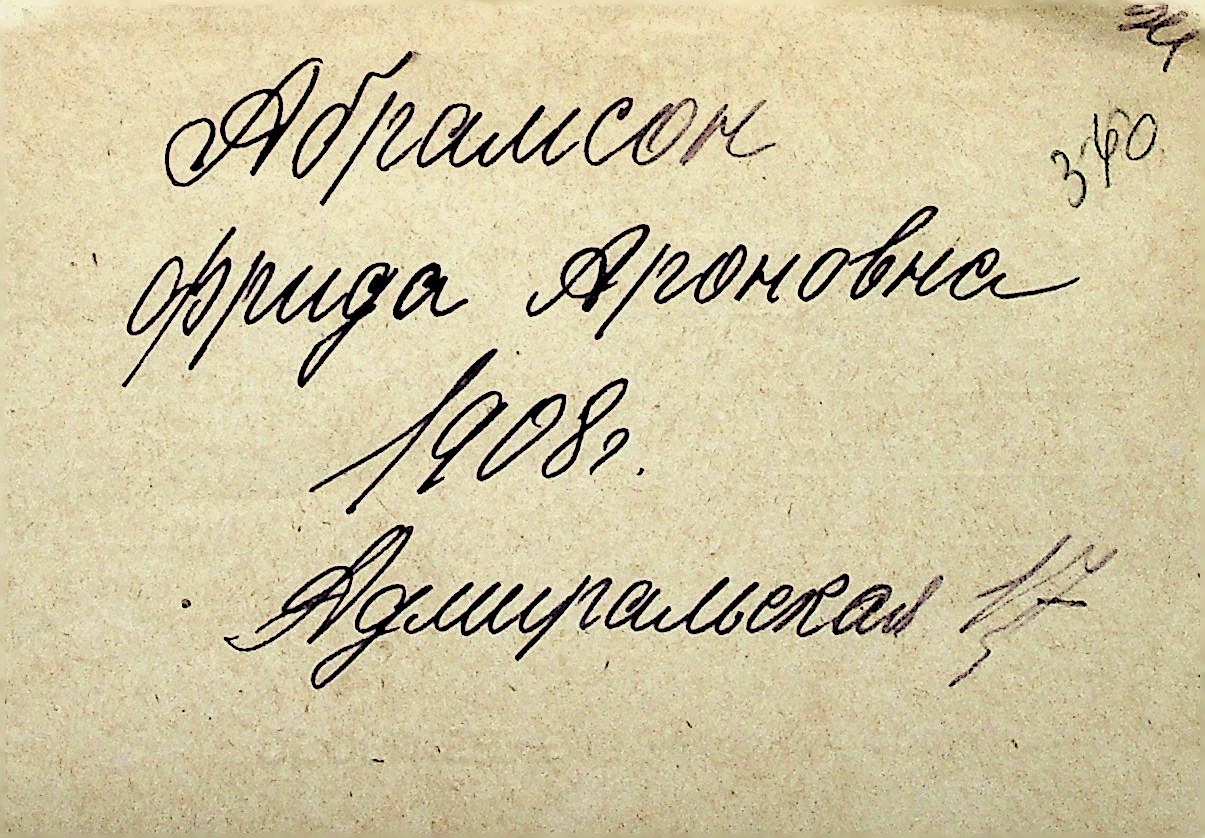 Абрамсон
340
Фрида Ароновна
1908г.
Адмиральская 17